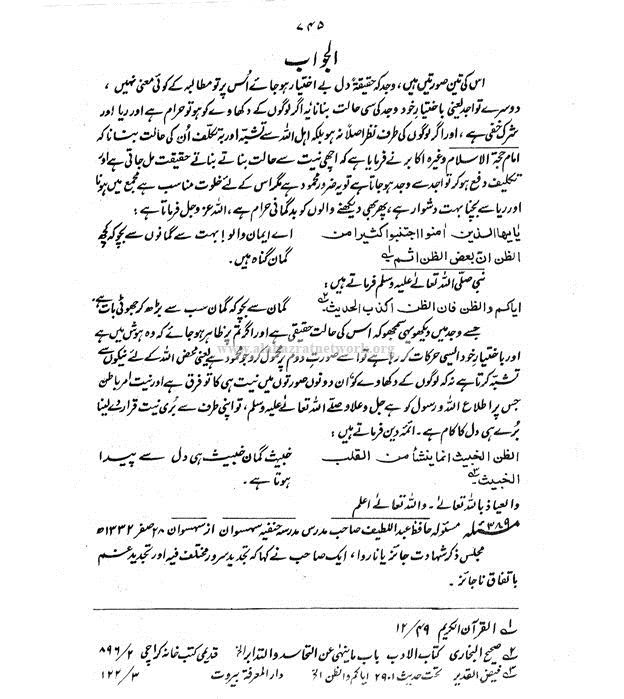 ۷۴۵
الجواب
اس کی تین صورتیں ہیں، وجد کہ حقیقۃً دل بے اختیار ہو جائے اُس پر تو مطالبہ کے کوئی معنی نہیں،
دوسرے تواجد یعنی باختیار خود وجد کی سی حالت بنانا یہ اگر لوگوں کے دکھاوے کو ہو تو حرام ہے اور ریا اور
شرک خفی ہے، اور اگر لوگوں کی طرف نظر اصلاً نہ ہو بلکہ اہل اللہ سے تشبہ اور بہ تکلف اُن کی حالت بنانا کہ
امام حجۃ الاسلام وغیرہ اکابر نے فرمایا ہے کہ اچھی نیت سے حالت بناتے بناتے حقیقت مل جاتی ہے اور
تکلیف دفع ہو کر تواجد سے وجد ہو جاتا ہے تو یہ ضرور محمود ہے مگر اس کے لئے خلوت مناسب ہے مجمع میں ہونا
اور ریا سے بچنا بہت دشوار ہے، پھر بھی دیکھنے والوں کو بدگمانی حرام ہے، اللہ عزوجل فرماتا ہے:
یایھا الذین اٰمنوا اجتنبوا کثیرا من اے ایمان والو! بہت سے گمانوں سے بچو کہ کچھ
الظن ان بعض الظن اثم ۱؎ گمان گناہ ہیں۔
نبی صلی اللہ تعالٰی علیہ وسلم فرماتے ہیں:
ایاکم والظن فان الظن اکذب الحدیث ۲؎ گمان سے بچو کہ گمان سب سے بڑھ کر جھوٹی بات ہے۔
جسے وجد میں دیکھو یہی سمجھو کہ اس کی حالت حقیقی ہے اور اگر تم پر ظاہر ہو جائے کہ وہ ہوش میں ہے
اور باختیار خود ایسی حرکات کر رہا ہے تو اسے صورت دوم پر محمول کرو جو محمود ہے یعنی محض اللہ کے لئے نیکوں سے
تشبہ کرتا ہے نہ کہ لوگوں کے دکھاوے کو، ان دونوں صورتوں میں نیت ہی کا تو فرق ہے اور نیت امر باطن
جس پر اطلاع اللہ و رسول کو ہے جل وعلا و صلی اللہ تعالٰی علیہ وسلم، تو اپنی طرف سے بُری نیت قرار دے لینا
بُرے ہی دل کا کام ہے۔ ائمہ دین فرماتے ہیں:
الظن الخبیث انما ینشأ من القلب خبیث گمان خبیث ہی دل سے پیدا
الخبیث ۳؎ ہوتا ہے۔
والعیاذ باللہ تعالٰی۔ واللہ تعالٰی اعلم
مسئلہ ۳۸۹ مسئولہ حافظ عبداللطیف صاحب مدرس مدرسہ حنفیہ سہسوان از سہسوان ۲۸ صفر ۱۳۳۲ھ
مجلس ذکر شہادت جائز یا ناروا، ایک صاحب نے کہا کہ تجدید سرور مختلف فیہ اور تجدید غم
باتفاق ناجائز۔
۱؎ القرآن الکریم ۴۹/۱۲
۲؎ صحیح البخاری کتاب الادب باب ما ینہی عن التحاسد والتدابر الخ قدیمی کتب خانہ کراچی ۲/۸۹۶
۳؎ فیض القدیر تحت حدیث ۲۹۰۱ ایاکم والظن الخ دار المعرفۃ بیروت ۳/۱۲۲